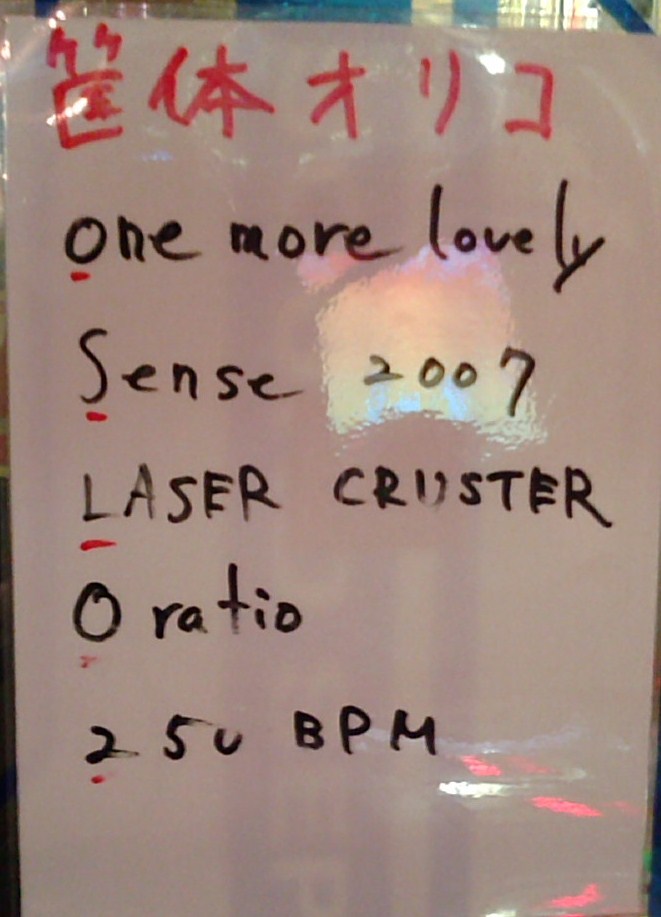 筐体オリコ
One more lovely
Sense 2007
LASER CRUSTER
O ratio
250 BPM